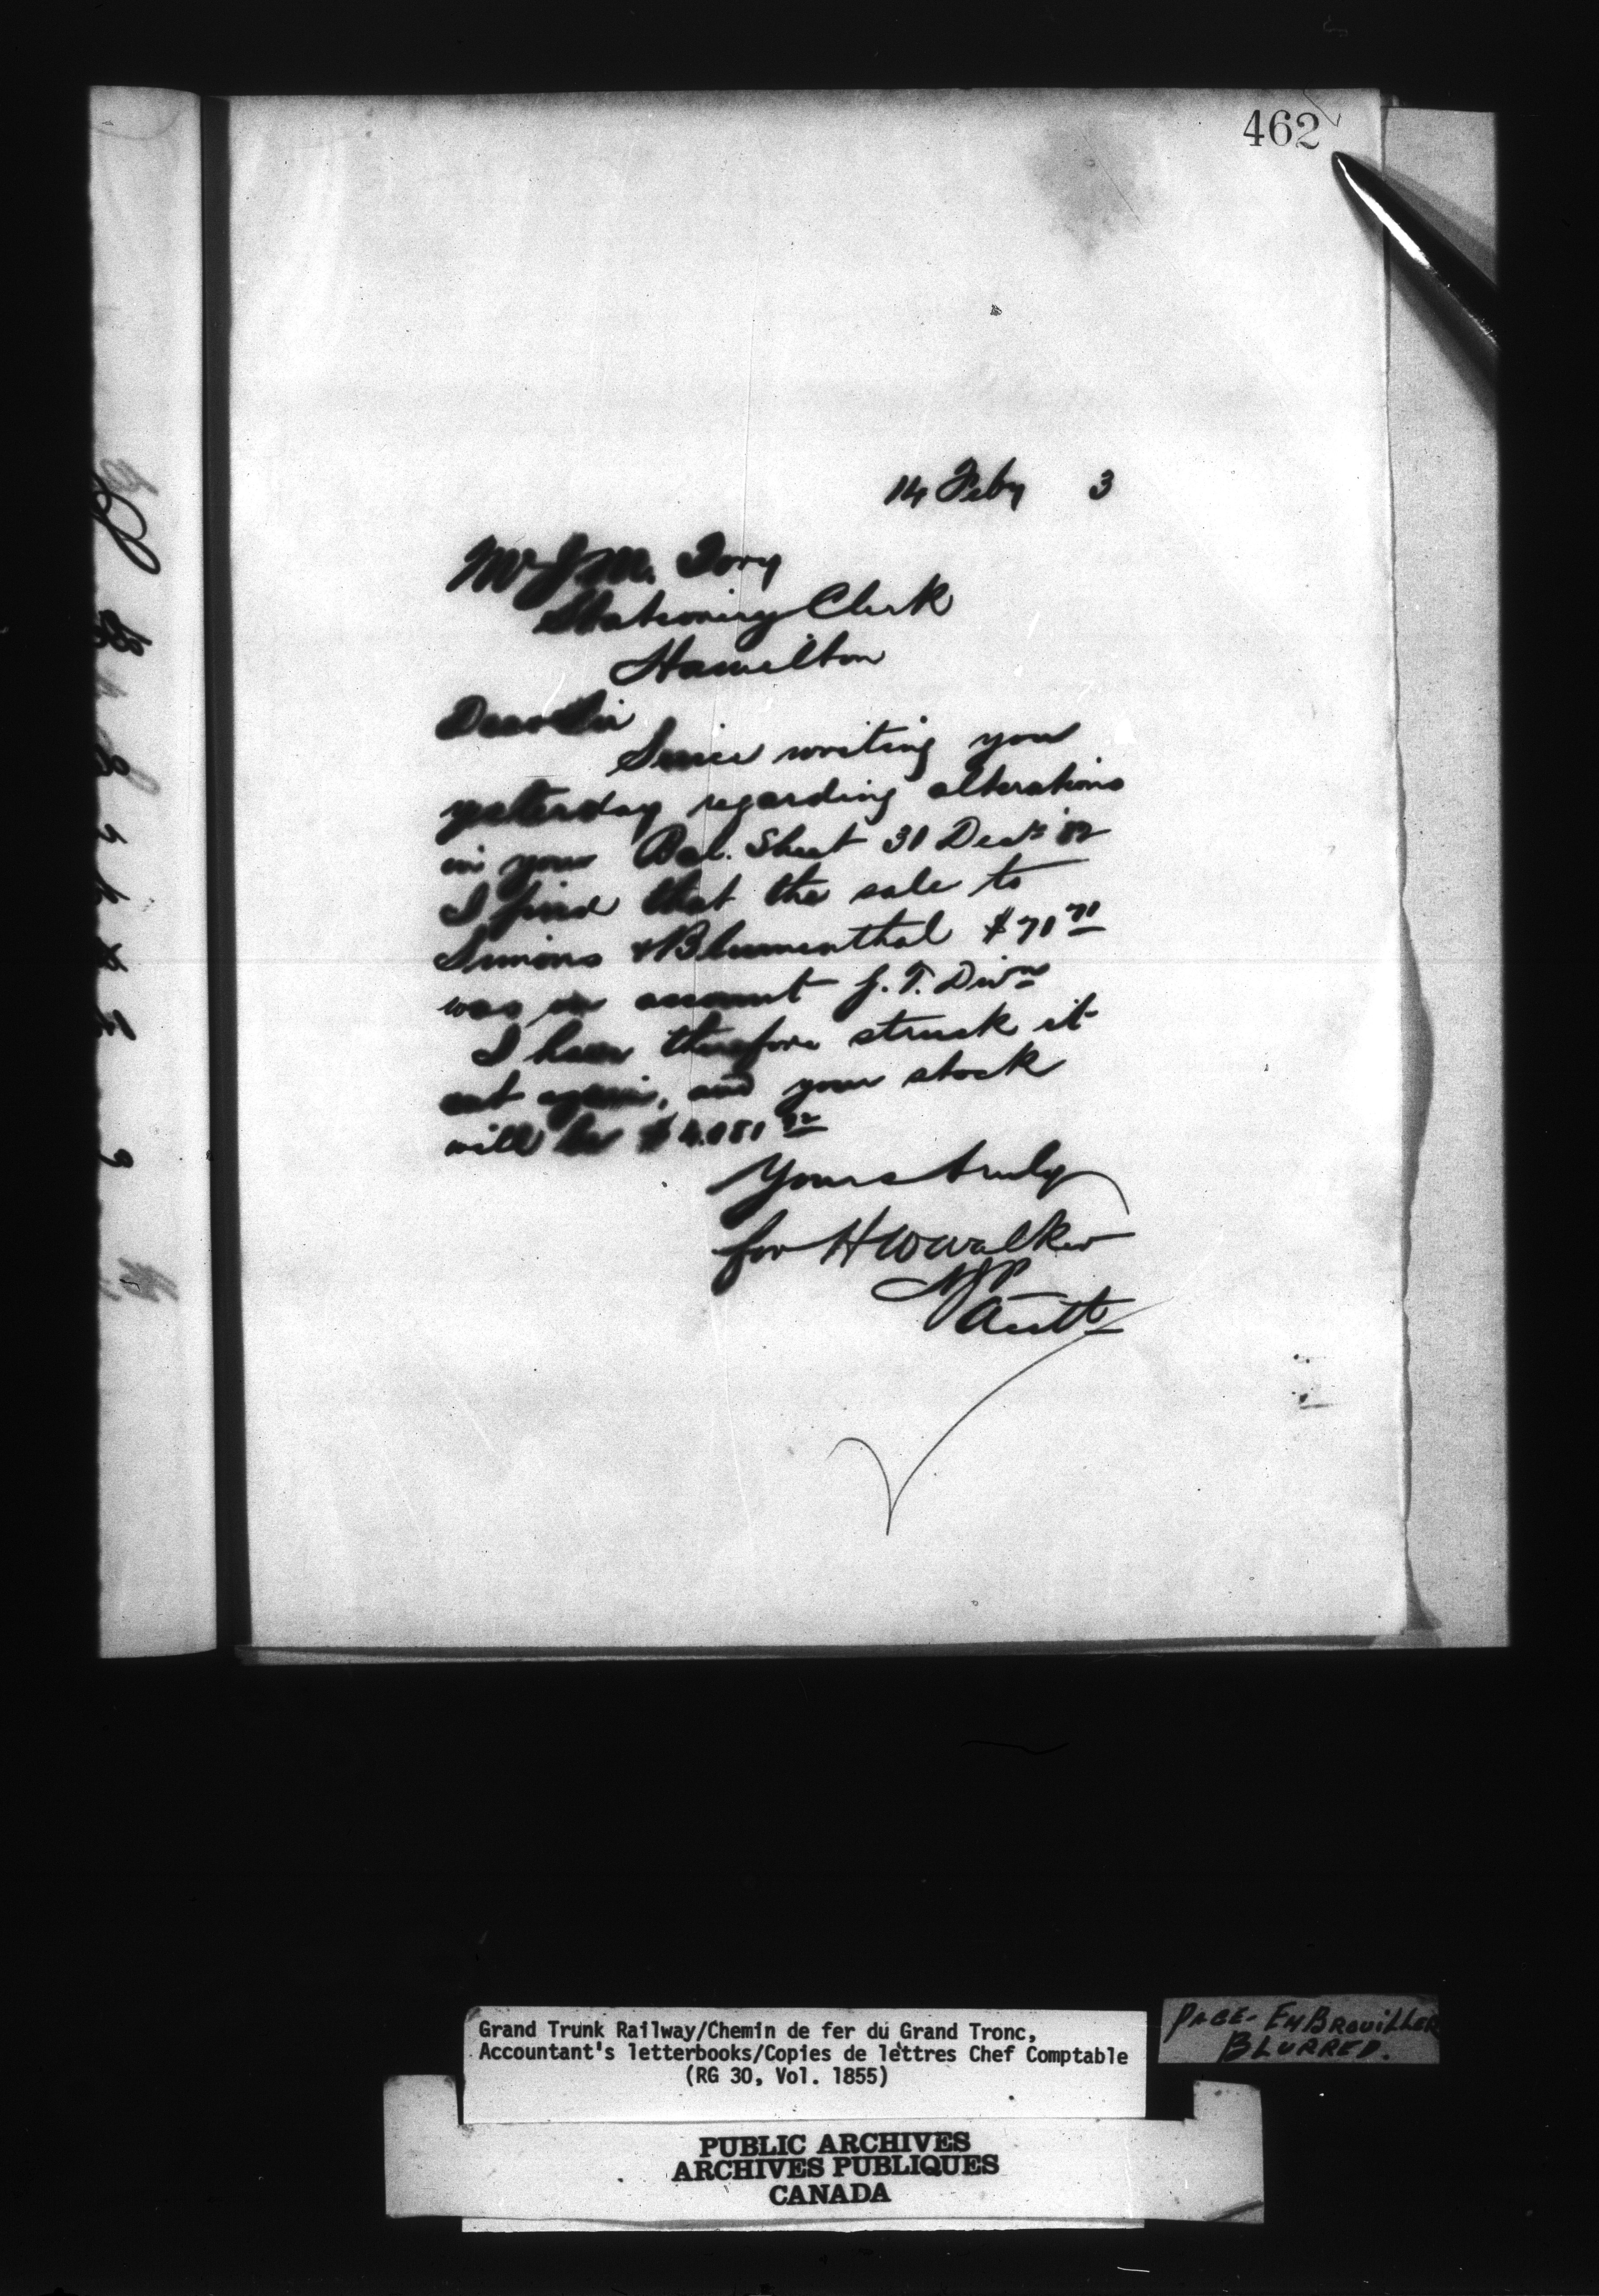 462
14 Feby 3
Mr J. M. Tory
Stationery Clerk
Hamilton
Dear Sir
Since writing you
yesterday regarding alterations
in your Bal. Sheet 31 Decr '82
I find that the sale to
Simons & Blumenthal $71 71
was in account G. T. Divn
I have therefore struck it
out again, and your stock
will be
Yours truly
for H W Walker
Acctt
Grand Trunk Railway/Chemin de fer du Grand Tronc,
Accountant's letterbooks/Copies de lettres Chef Comptable
(RG 30, Vol. 1855)
PAGE- EMBROUILLER
BLURRED.
PUBLIC ARCHIVES
ARCHIVES PUBLIQUES
CANADA